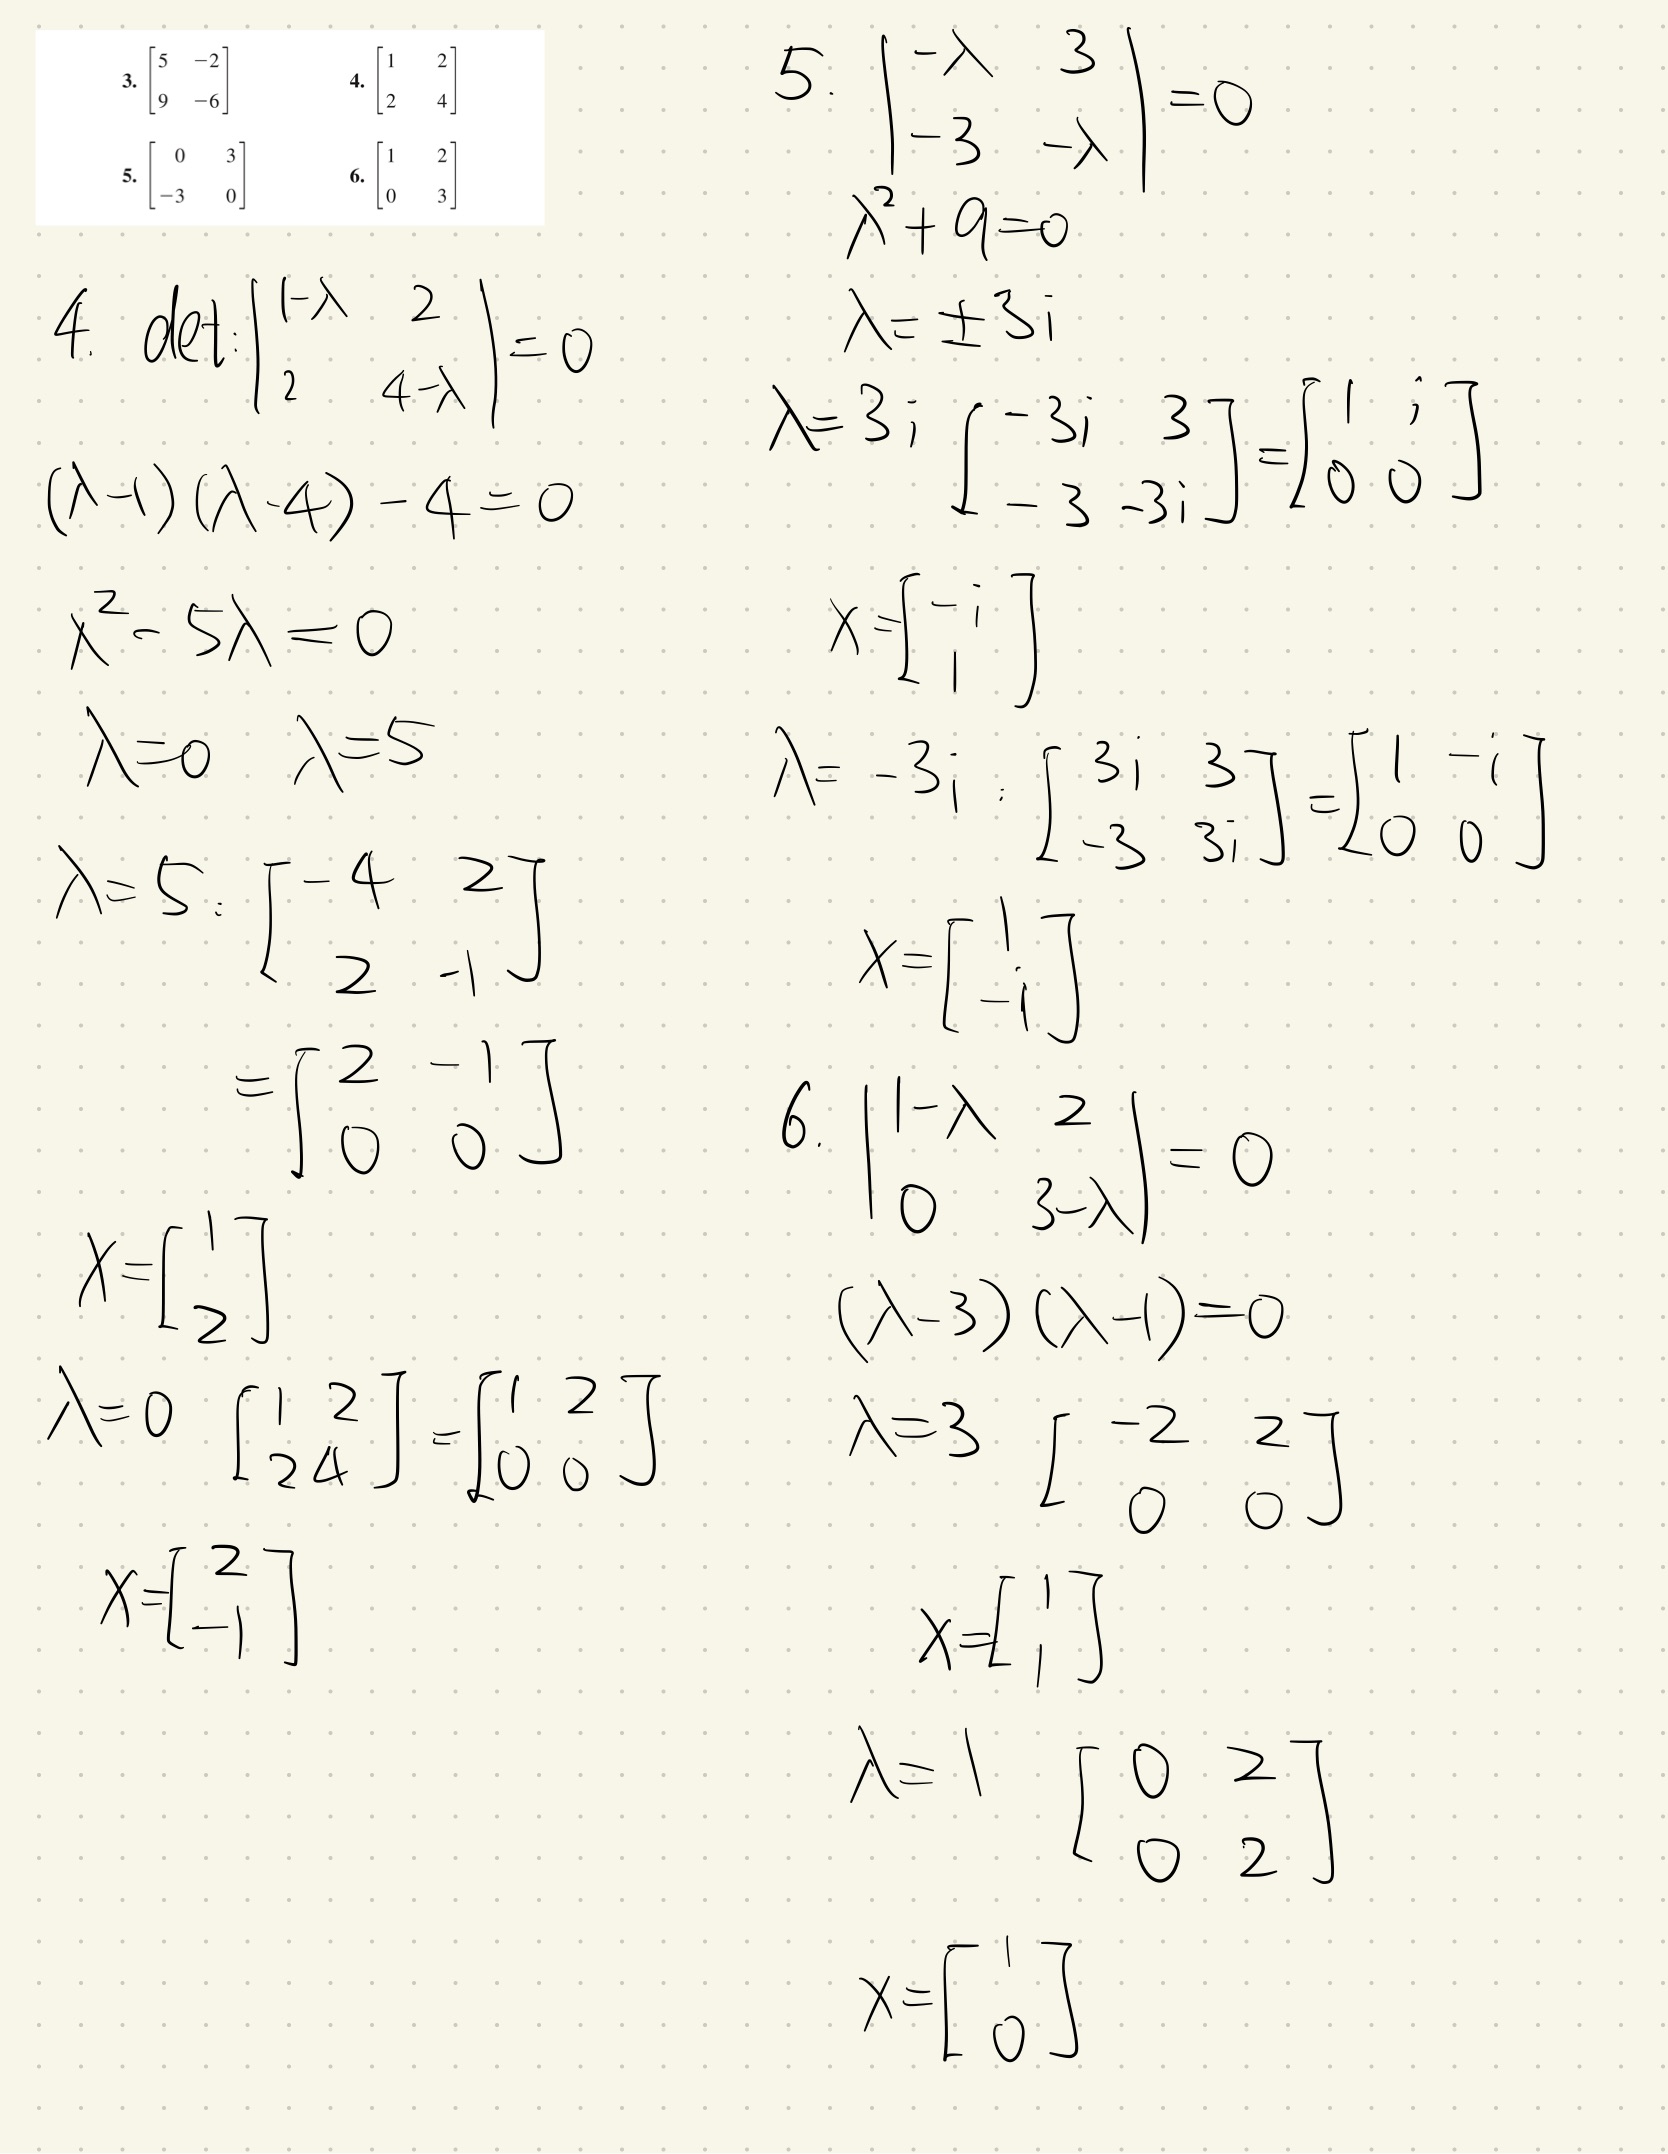 3. [5 −2; 9 −6] 4. [1 2; 2 4]
5. [0 3; −3 0] 6. [1 2; 0 3]
4. det: |1-λ 2; 2 4-λ| = 0
(λ-1)(λ-4) - 4 = 0
λ² - 5λ = 0
λ=0 λ=5
λ=5: [-4 2; 2 -1]
= [2 -1; 0 0]
x = [1; 2]
λ=0 [1 2; 2 4] = [1 2; 0 0]
x = [2; -1]
5. |-λ 3; -3 -λ| = 0
λ² + 9 = 0
λ = ±3i
λ=3i [-3i 3; -3 -3i] = [1 i; 0 0]
x = [-i; 1]
λ= -3i: [3i 3; -3 3i] = [1 -i; 0 0]
x = [1; -i]
6. |1-λ 2; 0 3-λ| = 0
(λ-3)(λ-1)=0
λ=3 [-2 2; 0 0]
x = [1; 1]
λ=1 [0 2; 0 2]
x = [1; 0]